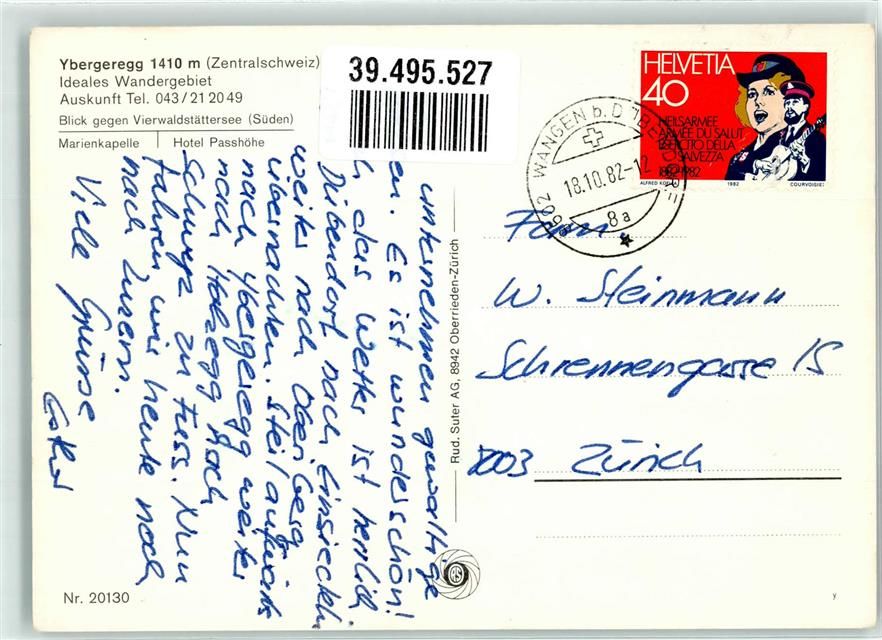 Ybergeregg 1410 m (Zentralschweiz)
Ideales Wandergebiet
Auskunft Tel. 043/21 20 49
Blick gegen Vierwaldstättersee (Süden)
Marienkapelle | Hotel Passhöhe
39.495.527
HELVETIA
40
HEILSARMEE
ARMÉE DU SALUT
ESERCITO DELLA
SALVEZZA
1882-1982
1982
COURVOISIER
8602 WANGEN b. DÜBENDORF
18.10.82-12
8a
unternehmen gewaltige
en. Es ist wunderschön!
h das Wetter ist herrlich
Dübendorf nach Einsiedeln
weiter nach Oberiberg
übernachten. Steil aufwärts
nach Ybergeregg weiter
nach Holzegg nach
Schwyz zu Fuss. Nun
fahren wir heute noch
nach Luzern.
Viele Grüsse
Rud. Suter AG, 8942 Oberrieden-Zürich
Fam.
W. Steinmann
Schrennengasse 15
8003 Zürich
Nr. 20130
y